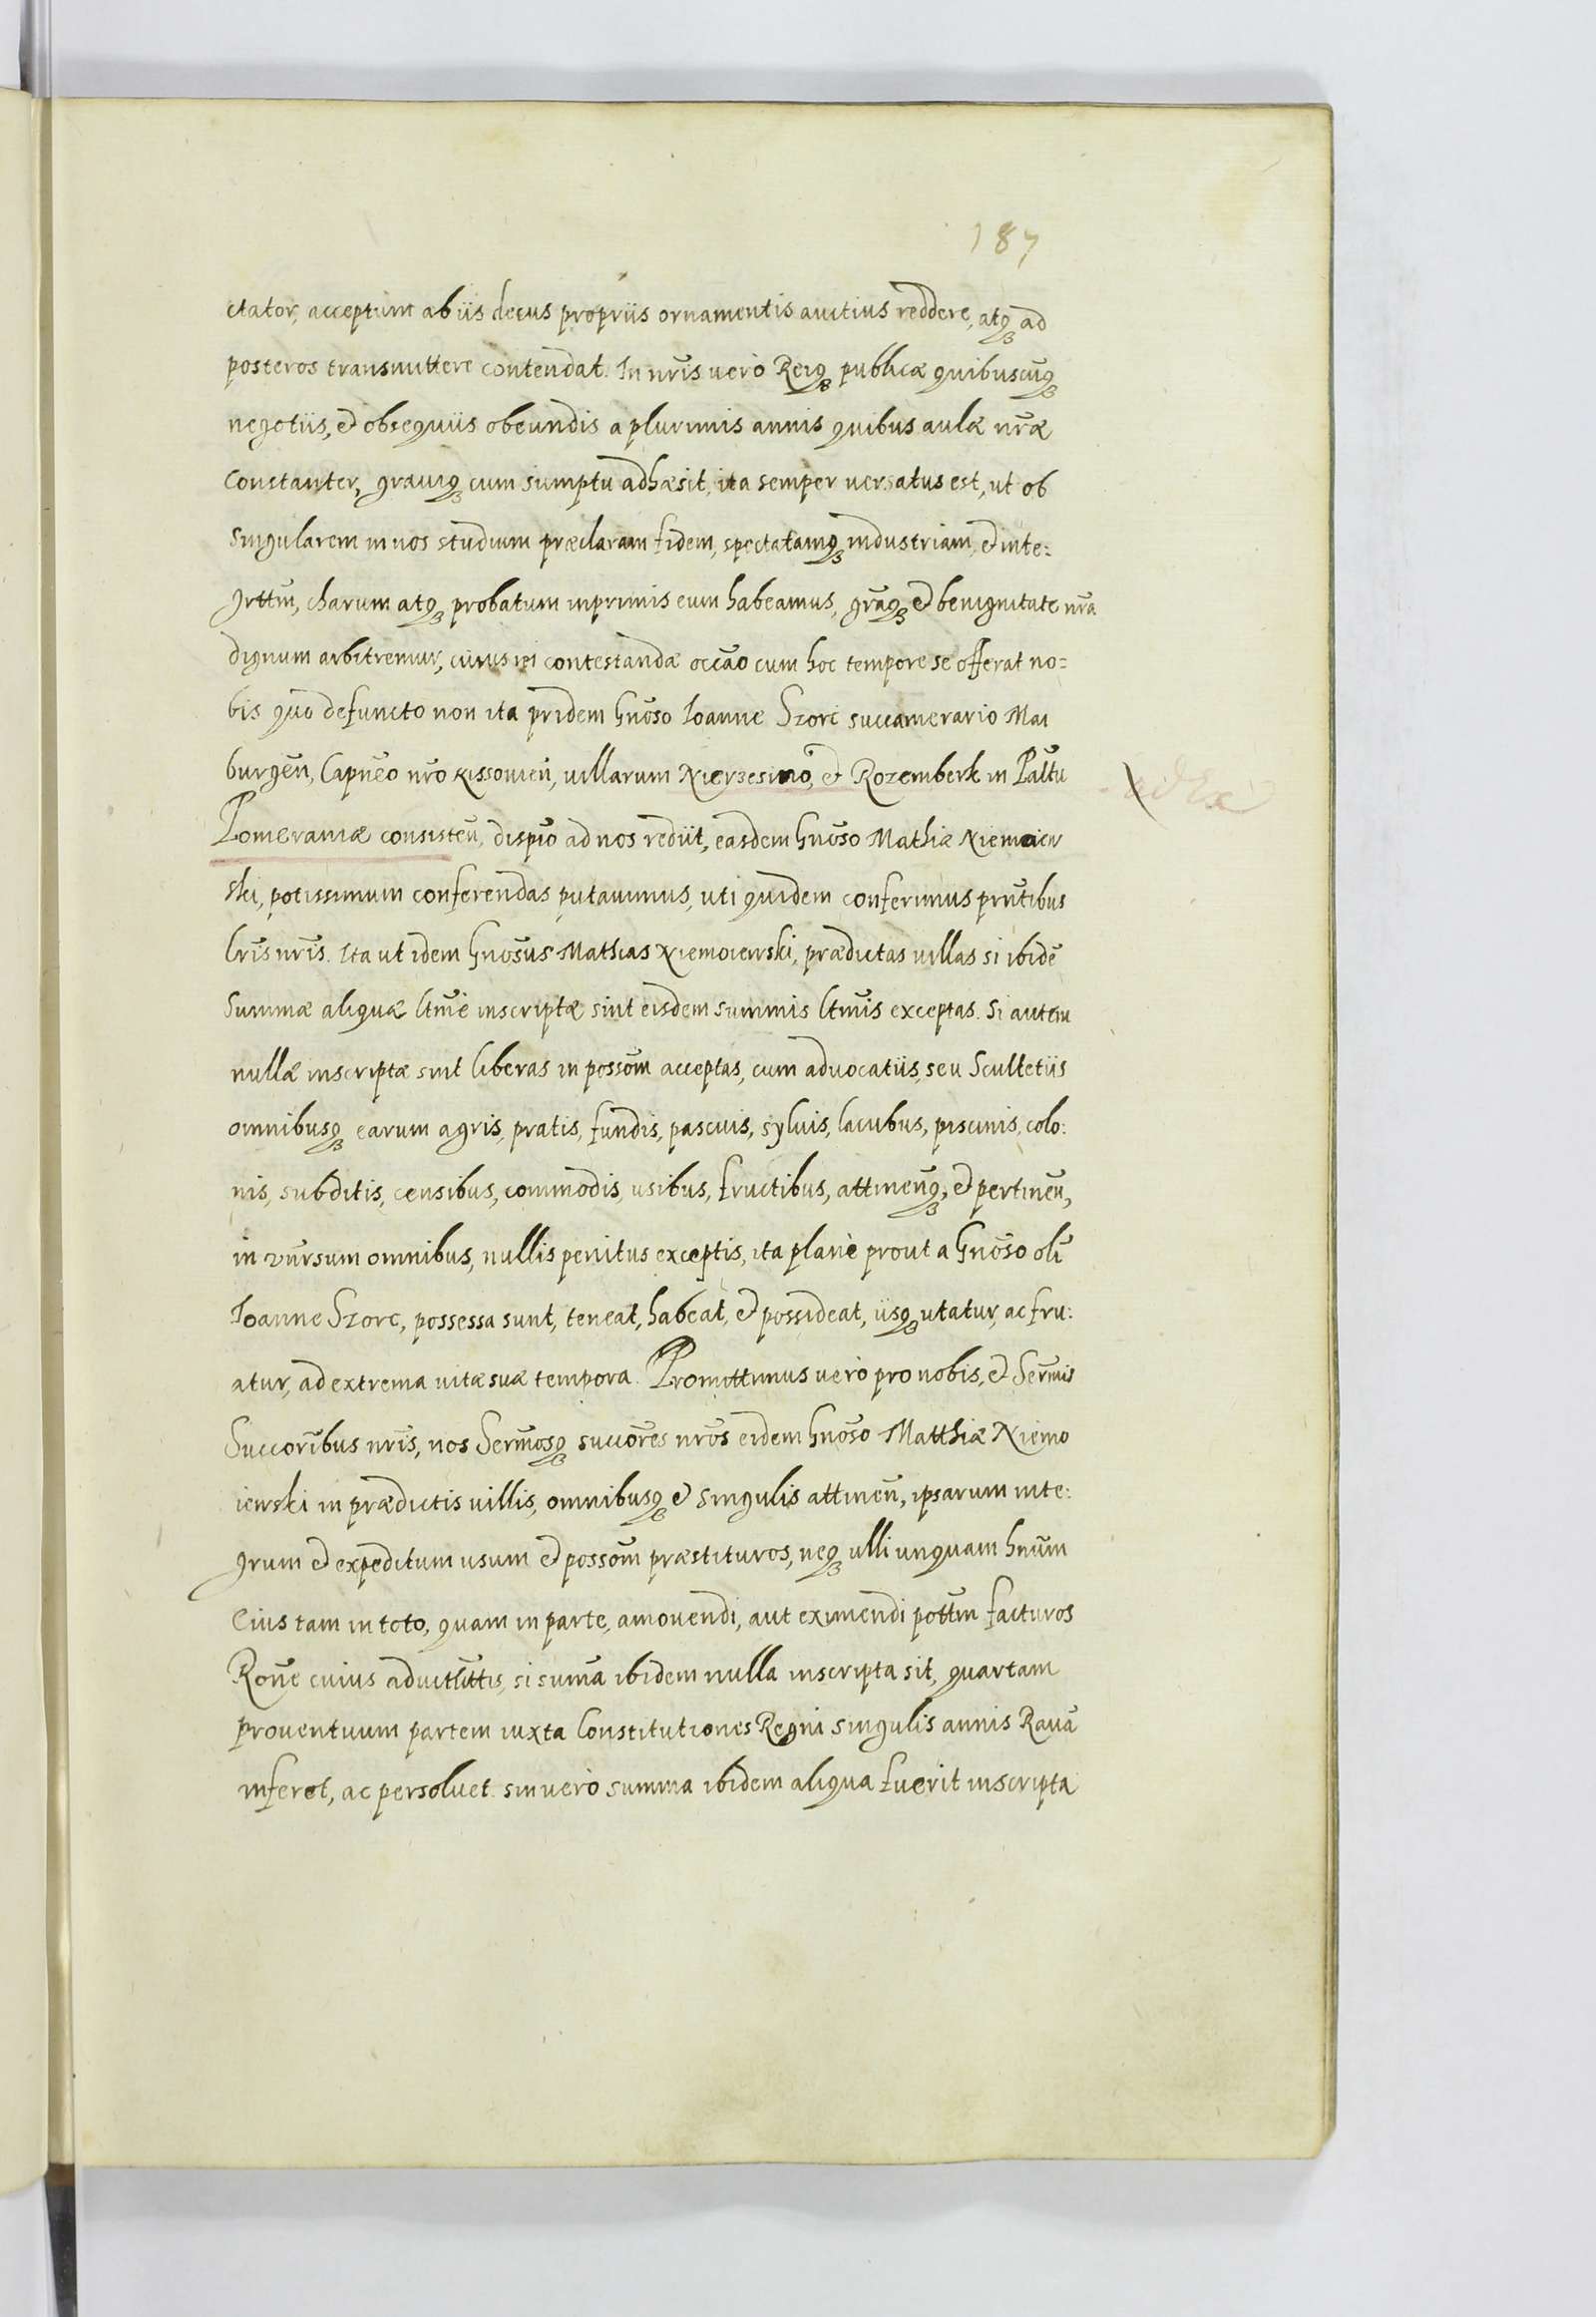 187
ctator, acceptum ab iis decus propriis ornamentis auctius reddere, atq̃ ad
posteros transmittere contendat. In nr̃is uerò Reiq̃ publicæ quibuscũq̃
negotiis, et obsequiis obeundis a plurimis annis quibus aulæ nr̃æ
Constanter, grauiq̃ cum sumptu adhæsit, ita semper uersatus est, ut ob
singularem in nos studium præclaram fidem, spectatamq̃ industriam, et inte:
grttm̃, charum atq̃ probatum inprimis eum habeamus, gr̃aq̃ et benignitate nr̃a
dignum arbitremur, cuius rei contestandæ occão cum hoc tempore se offerat no=
bis quo defuncto non ita pridem Gnõso Ioanne Szorc succamerario Mai
burgeñ, Capñeo nr̃o Kissouieñ, uillarum Nierzesino, et Rozemberk in Pałtu
Pomeraniæ consisteñ, dispõ ad nos rediit, easdem Gnõso Mathiæ Niemoiew
ski, potissimum conferendas putauimus, uti quidem conferimus prñtibus
lr̃is nr̃is. Ita ut idem Gnõsus Mathias Niemoiewski, prædictas uillas si ibidẽ
Summæ aliquæ ltm̃e inscriptæ sint eisdem summis ltm̃is exceptas. Si autem
nullæ inscriptæ sint liberas in possõm acceptas, cum aduocatiis, seu Scultetiis
omnibusq̃ earum agris, pratis, fundis, pascuis, syluis, lacubus, piscinis, colo:
nis, subditis, censibus, commodis, usibus, fructibus, attineñq̃, et pertineñ,
in vñrsum omnibus, nullis penitus exceptis, ita planè prout a Gnõso olĩ
Ioanne Szorc, possessa sunt, teneat, habeat, et possideat, iisq̃ utatur, ac fru:
atur, ad extrema uitæ suæ tempora. Promittimus uerò pro nobis, et Serm̃is
Succorĩbus nr̃is, nos Serm̃osq̃ succorẽs nr̃os eidem Gnõso Matthiæ Niemo
iewski in prædictis uillis, omnibusq̃ et singulis attineñ, ipsarum inte:
grum et expeditum usum et possõm præstituros, neq̃ ulli unquam hnũm
Eius tam in toto, quam in parte, amouendi, aut eximendi pottm̃ facturos
Roñe cuius aduitłttis, si sum̃a ibidem nulla inscripta sit, quartam
prouentuum partem iuxta Constitutiones Regni singulis annis Rauã
inferet, ac persoluet. sin uerò summa ibidem aliqua fuerit inscripta